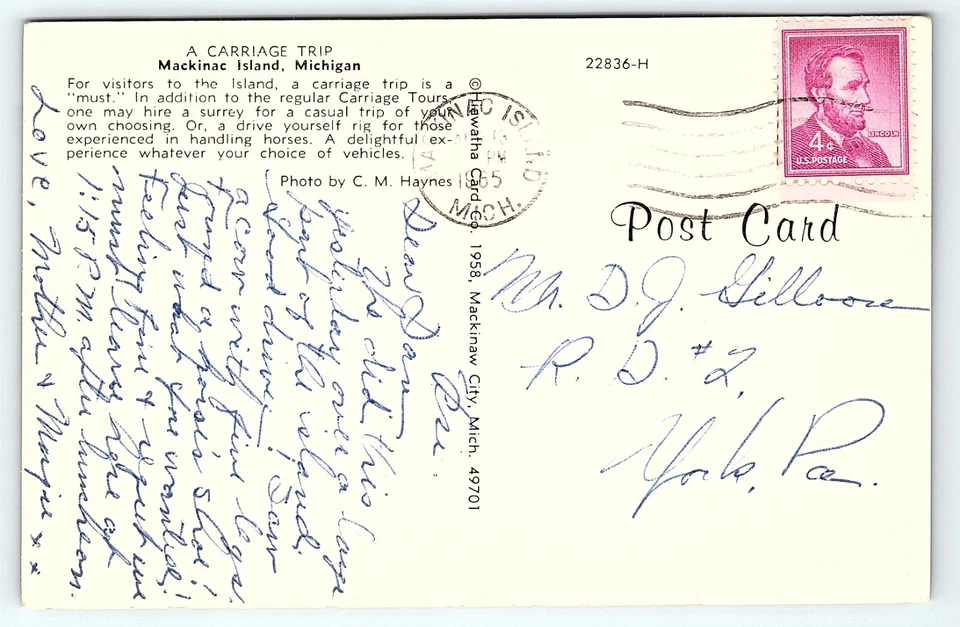 A CARRIAGE TRIP
Mackinac Island, Michigan
For visitors to the Island, a carriage trip is a
"must." In addition to the regular Carriage Tours,
one may hire a surrey for a casual trip of your
own choosing. Or, a drive yourself rig for those
experienced in handling horses. A delightful ex-
perience whatever your choice of vehicles.
Photo by C. M. Haynes
22836-H
©Hiawatha Card Co. 1958, Mackinaw City, Mich. 49701
MACKINAC ISLAND
PM
1965
MICH.
LINCOLN
4¢
U.S. POSTAGE
Post Card
Mr. D. J.
R. D. #2,
York, Pa.
Dear Dan
We did this
yesterday over a large
part of the island.
Good driver! Saw
a cow with five legs.
Found a horse's shoe!
Just what we wanted!
Feeling fine & regret we
must leave here at
1:15 P.M. after luncheon.
Love, Mother & Margie x x